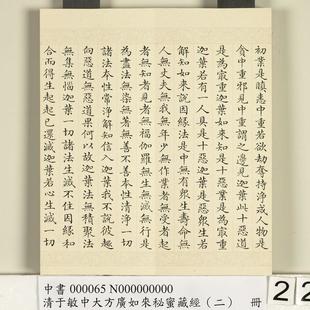 初業是瞋恚中重若欲劫奪持淨戒人物是
貪中重邪見中重謂之邊見迦葉此十惡道
是為寂重迦葉如來知是十惡業是為寂重
迦葉若有一人具是十惡迦葉是惡眾生若
解知如來說因緣法是中無有眾生壽命無
人無丈夫無我無年少無作業者無受者起
者無知者見者無福伽羅無生無滅無行是
為盡法無染無著無善不善本性清淨一切
諸法本性常淨解知信入迦葉我不說彼趣
向惡道無惡道果何以故迦葉法無積聚法
無集無惱迦葉一切諸法生滅不住因緣和
合而得生起起已還滅迦葉若心生滅一切
中書 000065 N000000000
清于敏中大方廣如來秘蜜藏經（二） 冊
22